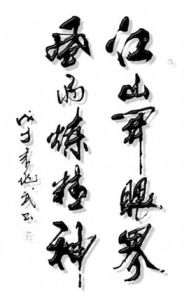 江山開眼界
風雨煉精神
戊子